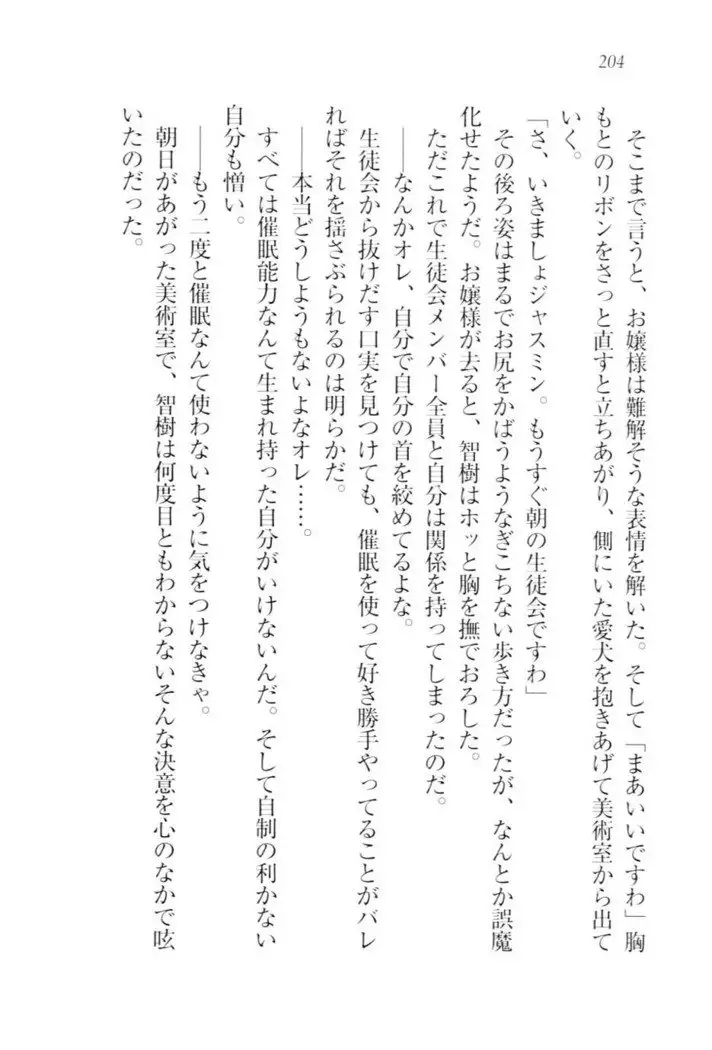 204
そこまで言うと、お嬢様は難解そうな表情を解いた。そして「まあいいですわ」胸
もとのリボンをさっと直すと立ちあがり、側にいた愛犬を抱きあげて美術室から出て
いく。
「さ、いきましょジャスミン。もうすぐ朝の生徒会ですわ」
その後ろ姿はまるでお尻をかばうようなぎこちない歩き方だったが、なんとか誤魔
化せたようだ。お嬢様が去ると、智樹はホッと胸を撫でおろした。
ただこれで生徒会メンバー全員と自分は関係を持ってしまったのだ。
――なんかオレ、自分で自分の首を絞めてるよな。
生徒会から抜けだす口実を見つけても、催眠を使って好き勝手やってることがバレ
ればそれを揺さぶられるのは明らかだ。
――本当どうしようもないよなオレ……。
すべては催眠能力なんて生まれ持った自分がいけないんだ。そして自制の利かない
自分も憎い。
――もう二度と催眠なんて使わないように気をつけなきゃ。
朝日があがった美術室で、智樹は何度目ともわからないそんな決意を心のなかで呟
いたのだった。